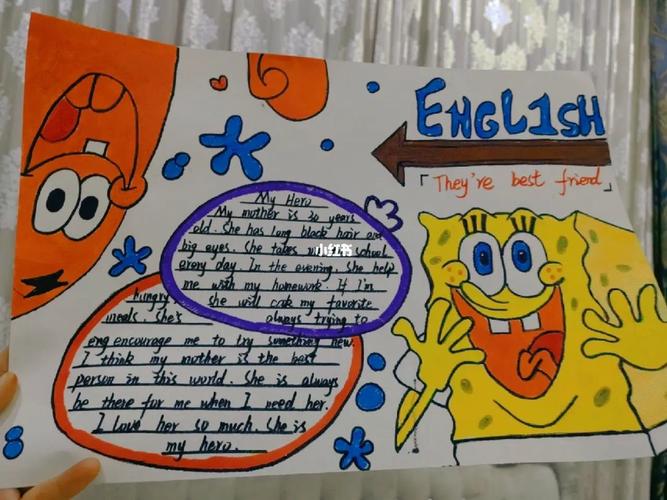 ENGL1SH
「They're best friend」
My Hero
My mother is 30 years
old. She has long black hair and
big eyes. She takes school
小红书
every day. In the evening. She help
me with my homework. If I'm
hungry she will cok my favorite
meals. She's always trying to
eng encourage me to try something new.
I think my mother is the best
person in this world. She is always
be there for me when I need her.
I love her so much. She is
my hero.